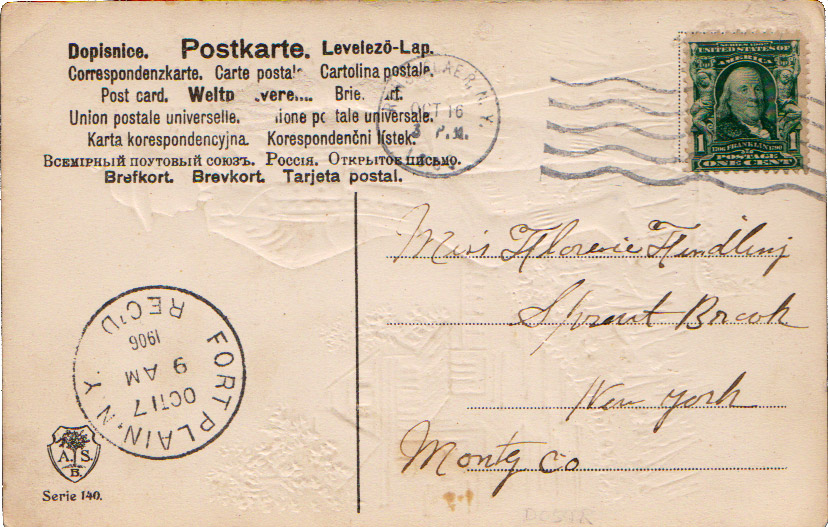 Dopisnice. Postkarte. Levelezö-Lap.
Correspondenzkarte. Carte postale. Cartolina postale.
Post card.
Union postale universelle. postale universale.
Karta korespondencyjna. Korespondenční lístek.
Всемірный поутовый союзъ. Россія. Открытое письмо.
Brefkort. Brevkort. Tarjeta postal.
N.Y.
OCT 16
3 P.M.
SERIES 1902
UNITED STATES OF
AMERICA
1706 FRANKLIN 1790
1 POSTAGE 1
ONE CENT
Miss Florence Findling
Sprout Brook
New York
Montg Co
FORT PLAIN, N.Y.
OCT 17
9 AM
1906
REC'D
A. S.
B.
Serie 140.